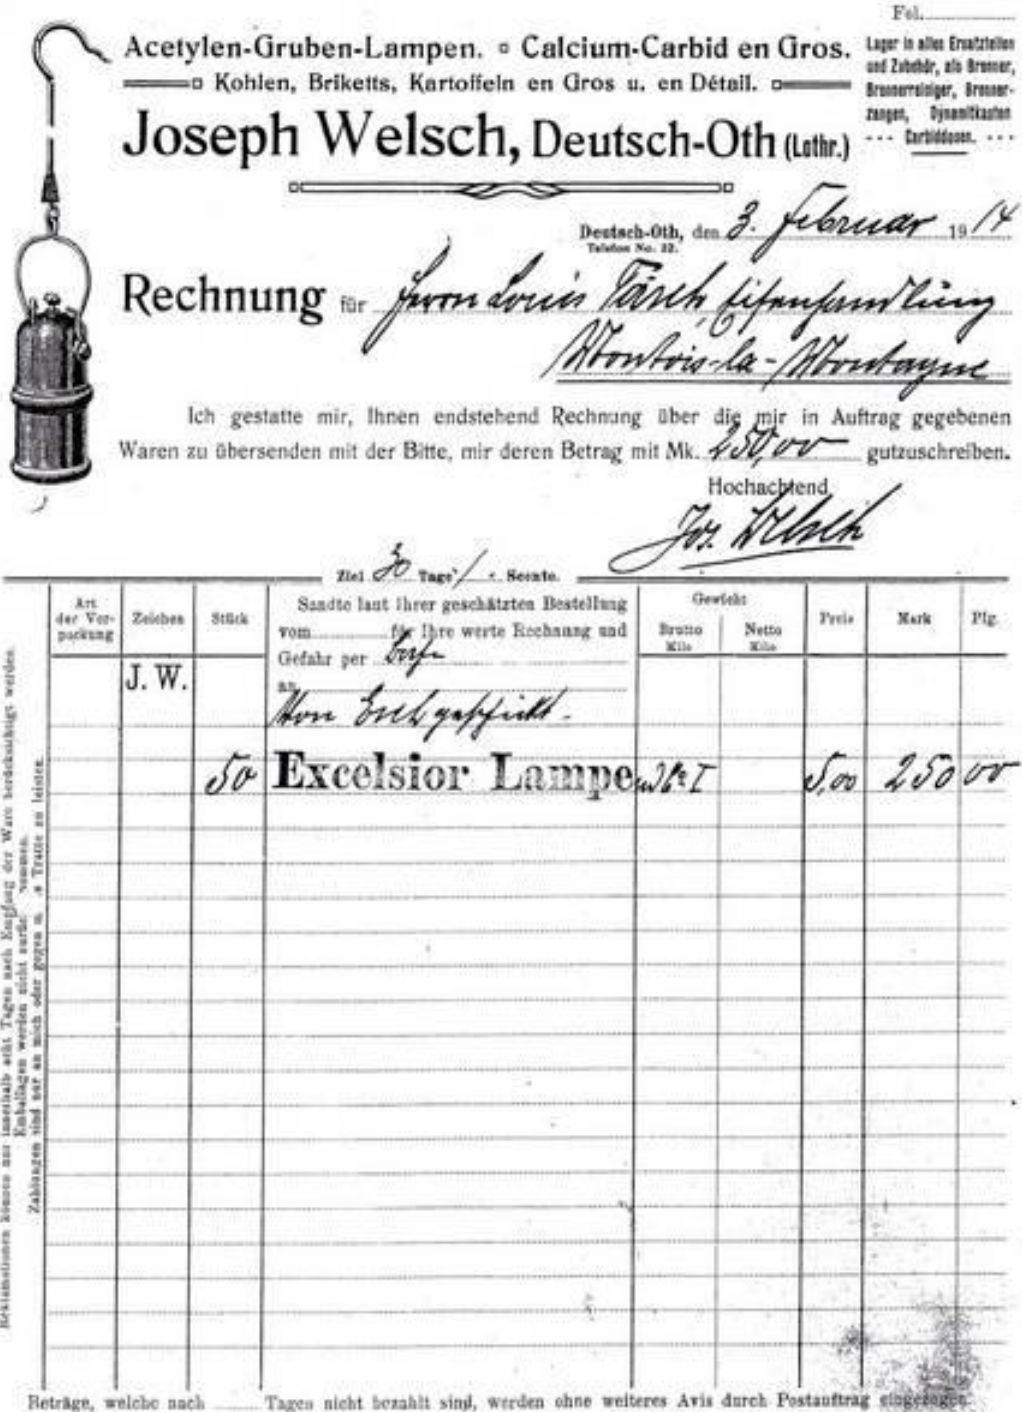 Fol.
Acetylen-Gruben-Lampen. Calcium-Carbid en Gros.
Kohlen, Briketts, Kartoffeln en Gros u. en Détail.
Joseph Welsch, Deutsch-Oth (Lothr.)
Lager in allen Ersatzteilen
und Zubehör, als Brenner,
Brennerreiniger, Brenner-
zangen, Dynamitkasten
--- Carbiddosen. ---
Deutsch-Oth, den 3. Februar 1914
Telefon No. 22.
Rechnung für Herrn Louis Eisenhandlung
Montois-la-Montagne
Ich gestatte mir, Ihnen endstehend Rechnung über die mir in Auftrag gegebenen
Waren zu übersenden mit der Bitte, mir deren Betrag mit Mk. 250,00 gutzuschreiben.
Hochachtend
Jos. Welsch
Ziel 30 Tage / Sconto.
Art der Ver-packung Zeichen Stück
Sandte laut Ihrer geschätzten Bestellung
vom für Ihre werte Rechnung und
Gefahr per
an
Gewicht
Brutto Kilo Netto Kilo
Preis Mark Pfg.
J. W.
Von Esch geschickt.
50 Excelsior Lampe I 5,00 250 00
Reklamationen können nur innerhalb acht Tagen nach Empfang der Ware berücksichtigt werden.
Emballagen werden nicht
Zahlungen sind nur an mich oder gegen Tratte zu leisten.
Beträge, welche nach Tagen nicht bezahlt sind, werden ohne weiteres Avis durch Postauftrag eingezogen.